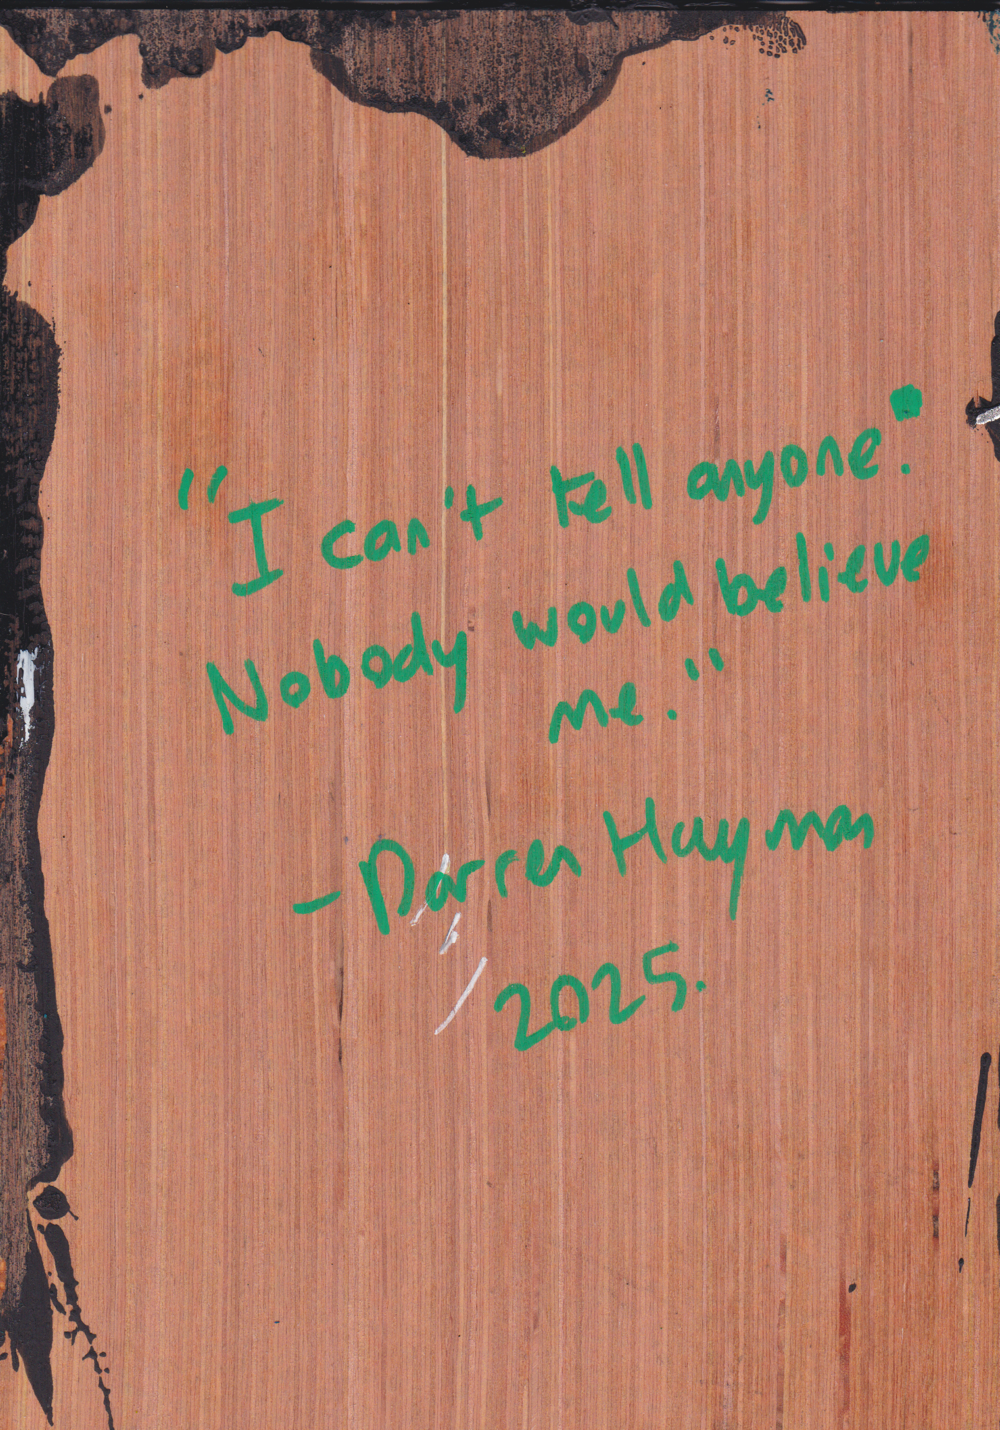 "I can't tell anyone.
Nobody would believe
me."
- Darren Hayman
2025.